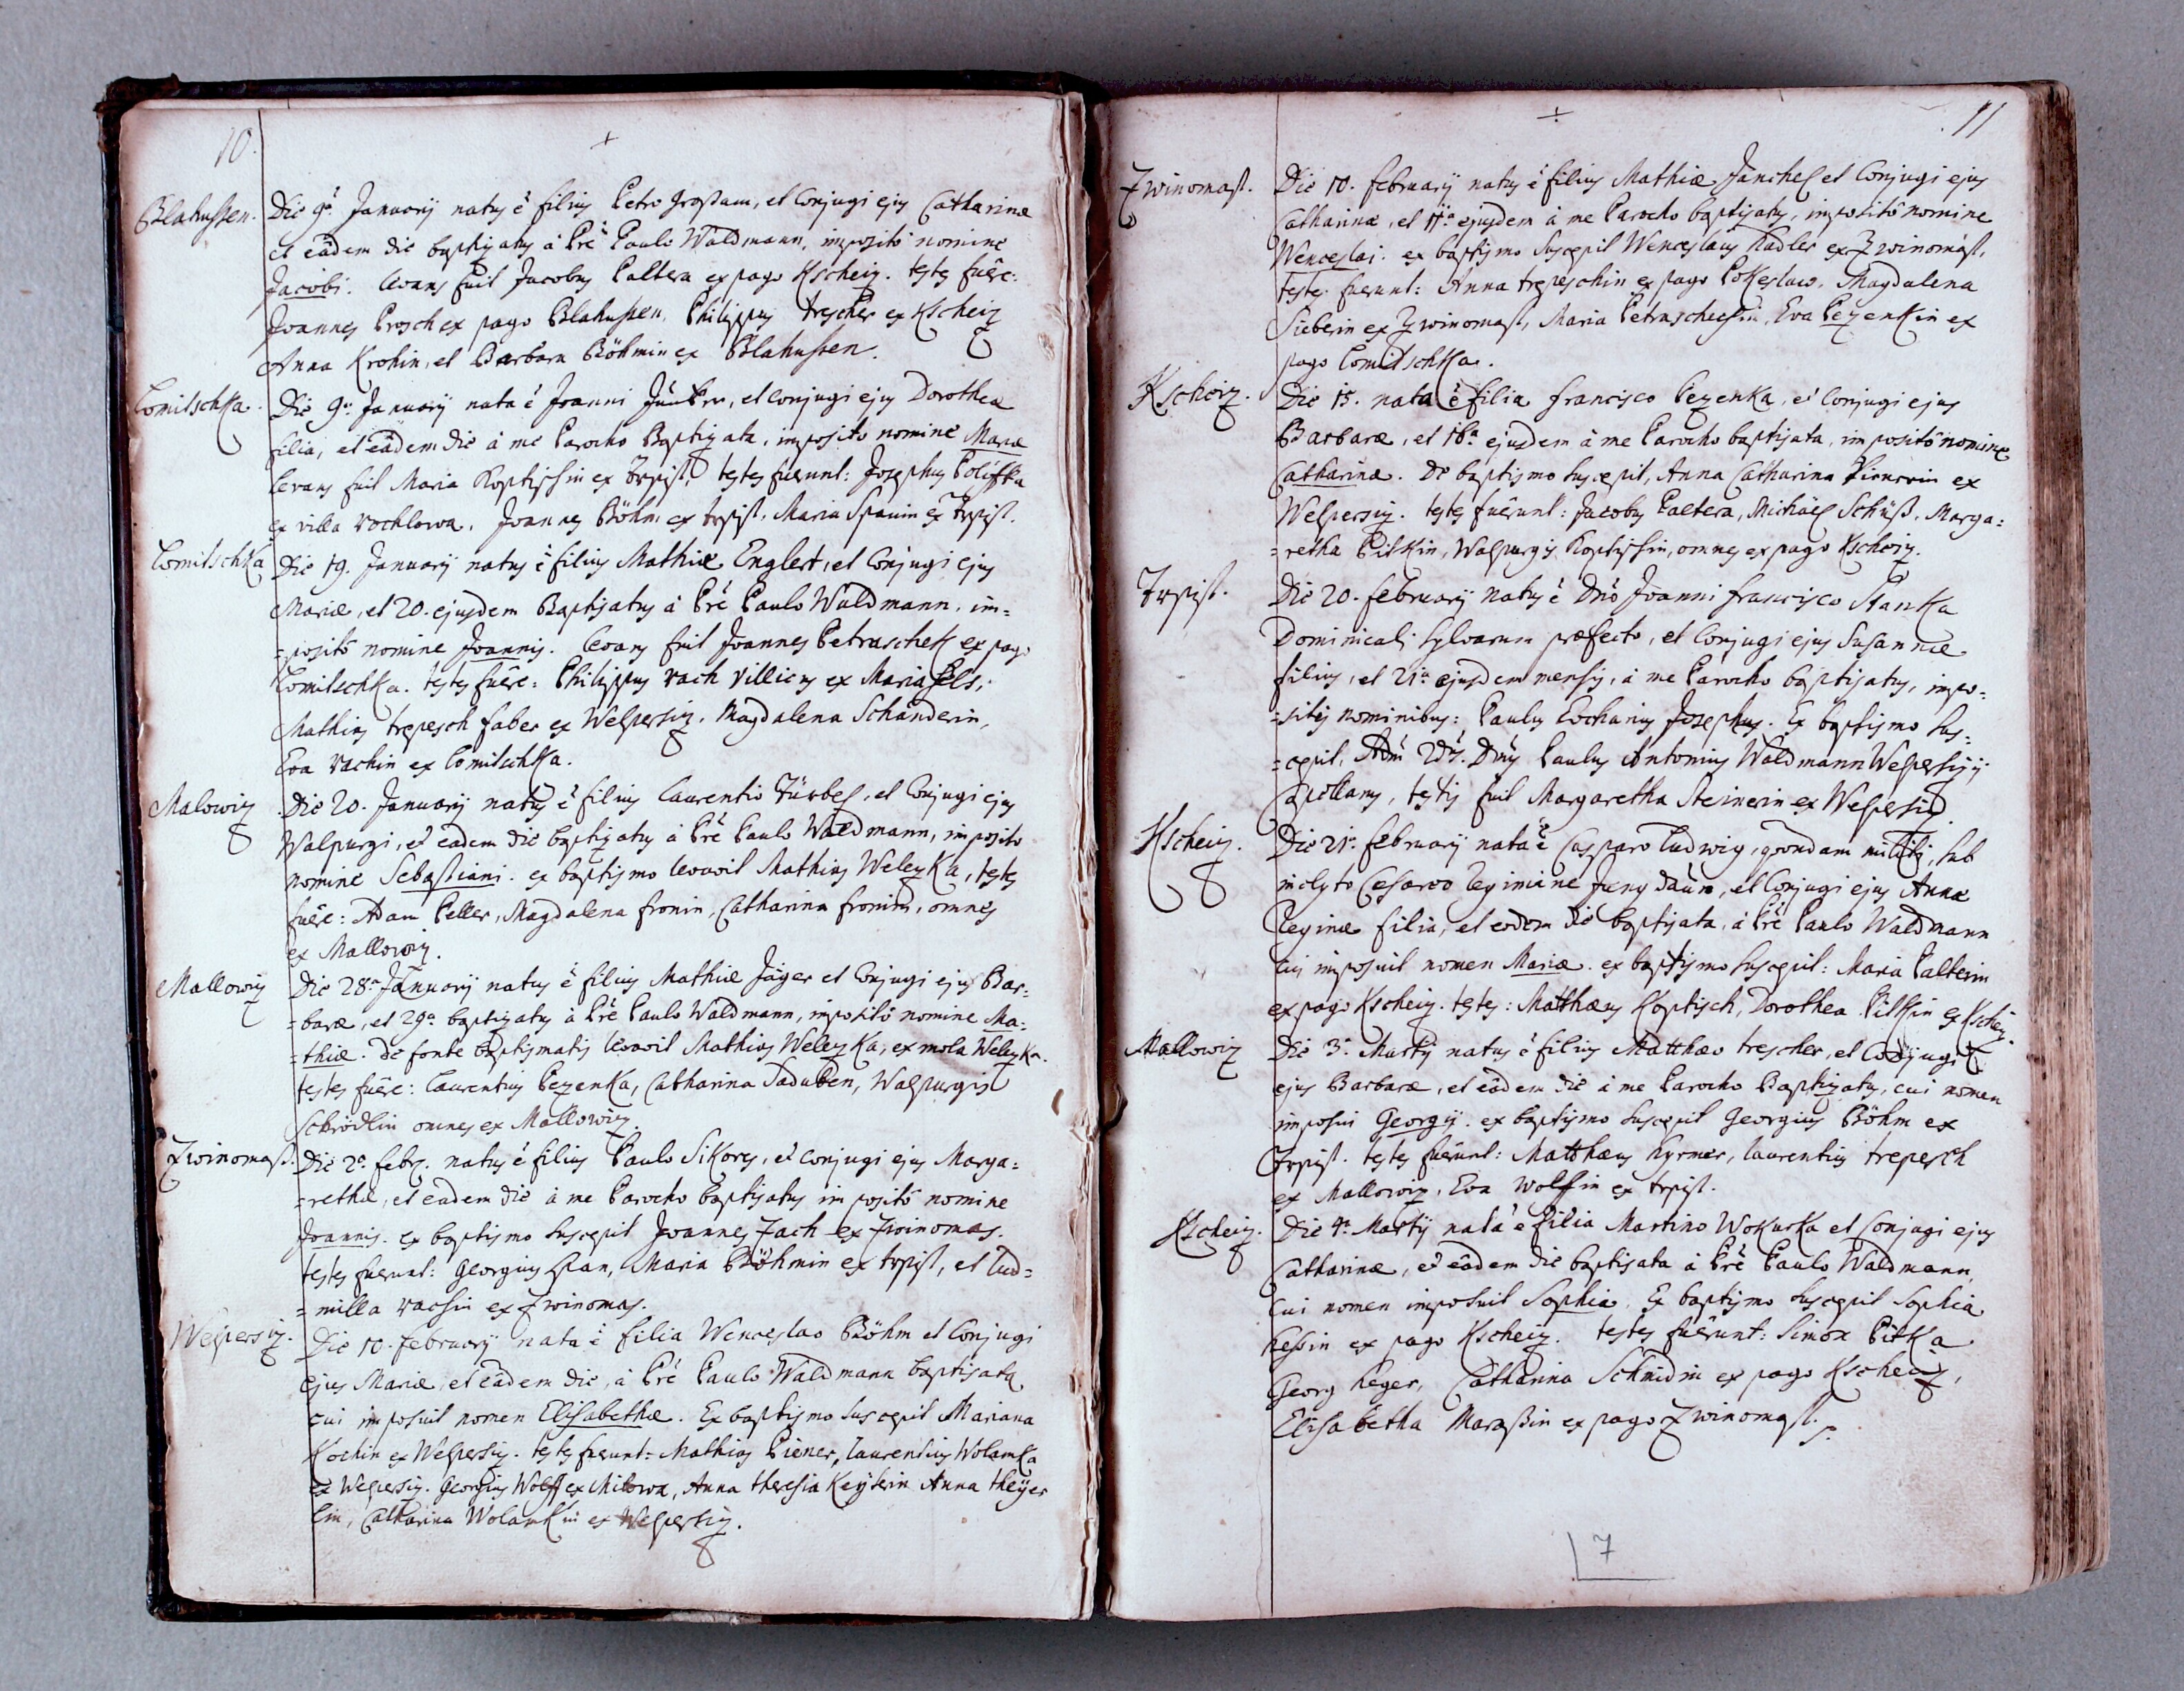 10.
Blahussen. Die 9â Januarij natus ê filius Petro Grossam, et Conjugi ejus Catharinæ
et eâdem die baptizatus à Prê Paulo Waldmann, impositô nomine
Jacobi. Levans fuit Jacobus Paltera ex pago Kscheiz. testes fuêre:
Joannes Prosch ex pago Blahussen, Philippus trescher ex Kscheiz
Anna Krohin, et Barbara Böhmin ex Blahussen.
Lomitschka. Die 9â Januarij nata ê Joanni, et conjugi ejus Dorothea
filia, et eâdem die à me Parocho Baptizata, imposito nomine Mariæ
levans fuit Maria Koptischin ex trpist, testes fuerunt: Josephus Poliffka
ex villa rochlowa, Joannes Böhm ex trpist, Maria Spanin ex Trpist.
Lomitschka Die 19. Januarij natus ê filius Mathiæ Englert, et Conjugi ejus
Mariæ, et 20. ejusdem Baptisatus à Prê Paulo Waldmann, im=
=positô nomine Joannis. Levans fuit Joannes Petraschek ex pago
Lomitschka. testes fuêre: Philippus rach Villicus ex Mariafels,
Mathias trepesch faber ex Welpersiz. Magdalena Schanderin,
Eva rachin ex Lomitschka.
Malowiz Die 20. Januarij natus ê filius Laurentio Türbes, et Conjugi ejus
Walpurgi, et eadem die baptizatus à Prê Paulo Waldmann, imposito
nomine Sebastiani. ex baptismo levavit Mathias Welezka, testes
fuêre: Adam Peller, Magdalena fronin, Catharina fronin, omnes
ex Mallowiz.
Mallowiz Die 28â Januarij natus ê filius Mathiæ Jäger et Conjugi ejus Bar=
=baræ, et 29â baptizatus à Prê Paulo Waldmann, impositô nomine Ma=
=thiæ. De fonte baptismatis levavit Mathias Welezka, ex mola Welezka.
testes fuêre: Laurentius Pezenka, Catharina, Walpurgis
Schrödlin omnes ex Mallowiz.
Zwinomast. Die 2â febr. natus ê filius Paulo Sikores, et conjugi ejus Marga=
=rethæ, et eadem die à me Parocho baptisatus impositô nomine
Joannis. ex baptismo suscepit Joannes Zach ex Zwinomas.
testes fuerunt: Georgius, Maria Böhmin ex trpist, et Lud=
=milla rachin ex Zwinomas.
Welpersiz. Die 10. february nata ê filia Wenceslao Böhm et Conjugi
ejus Mariæ, et eâdem die, à Prê Paulo Waldmann baptisata
cui imposuit nomen Elisabethæ. Ex baptismo suscepit Mariana
Kochin ex Welpersiz. testes fuerunt: Mathias Piener, Laurentius Wolamka
ex Welpersiz. Georgius Wolff ex Milowa, Anna theresia Keyserin Anna theyer
lin, Catharina Wolamkin ex Welpersiz.
11
Zwinomast. Die 10. february natus ê filius Mathiæ Jänchel et Conjugi ejus
Catharinæ, et 11â ejusdem à me Parocho baptizatus, impositô nomine
Wenceslai. ex baptismo suscepit Wenceslaus Kadler ex Zwinomast,
testes fuerunt: Anna trepeschin ex pago Pokeslaw, Magdalena
Sieberin ex Zwinomast, Maria Petraschekin, Eva Pezenkin ex
pago Lomitschka.
Kscheiz. Die 15. nata ê filia francisco Pezenka, et Conjugi ejus
Barbaræ, et 16â ejusdem à me Parocho baptisata, impositô nomine
Catharinæ. De baptismo suscepit, Anna Catharina Pienerin ex
Welpersiz. testes fuêrunt: Jacobus Paltera, Michäel Schüss, Marga=
=retha Pitkin, Walpurgis Koptischin, omnes ex pago Kscheiz.
Trpist. Die 20. february natus ê Dnô Joanni francisco Stanka
Dominicali sylvarum præfecto, et Conjugi ejus Susannæ
filius, et 21â ejusdem mensis, à me Parocho baptisatus, impo=
=sitis nominibus: Paulus Eucharius Josephus. Ex baptismo sus=
=cepit, Adm Rds. Dnus Paulus Antonius Waldmann Welpersizij
Capellanus, testis fuit Margaretha Steinerin ex Welpersiz.
Kscheiz. Die 21â february nata ê Casparo Ludwig, quondam militis, sub
inclyto Cesareo Regimine Jung Daun, et Conjugi ejus Annæ
Reginæ filia, et eodem die baptisata, à Prê Paulo Waldmann
cui imposuit nomen Mariæ. ex baptismo suscepit: Maria Palterin
ex pago Kscheiz. testes: Matthæus Koptisch, Dorothea Pitkin ex Kscheiz.
Mallowiz Die 3â Martij natus ê filius Matthæo trescher, et Conjugi
ejus Barbaræ, et eâdem die à me Parocho Baptizatus, cui nomen
imposui Georgij. ex baptismo suscepit Georgius Böhm ex
Trpist. testes fuêrunt: Matthæus Kyrmer, Laurentius trepesch
ex Mallowiz, Eva Wolfin ex trpist.
Kscheiz. Die 4â Martij nata ê filia Martino Wokurka et Conjugi ejus
Catharinæ, et eâdem die baptisata à Prê Paulo Waldmann,
cui nomen imposuit Sophia. Ex baptismo suscepit Sophia
hessin ex pago Kscheiz. testes fuêrunt: Simon Pitka
Georg heger, Catharina Schmidin ex pago Kscheiz,
Elisabetha Marassin ex pago Zwinomast.
7